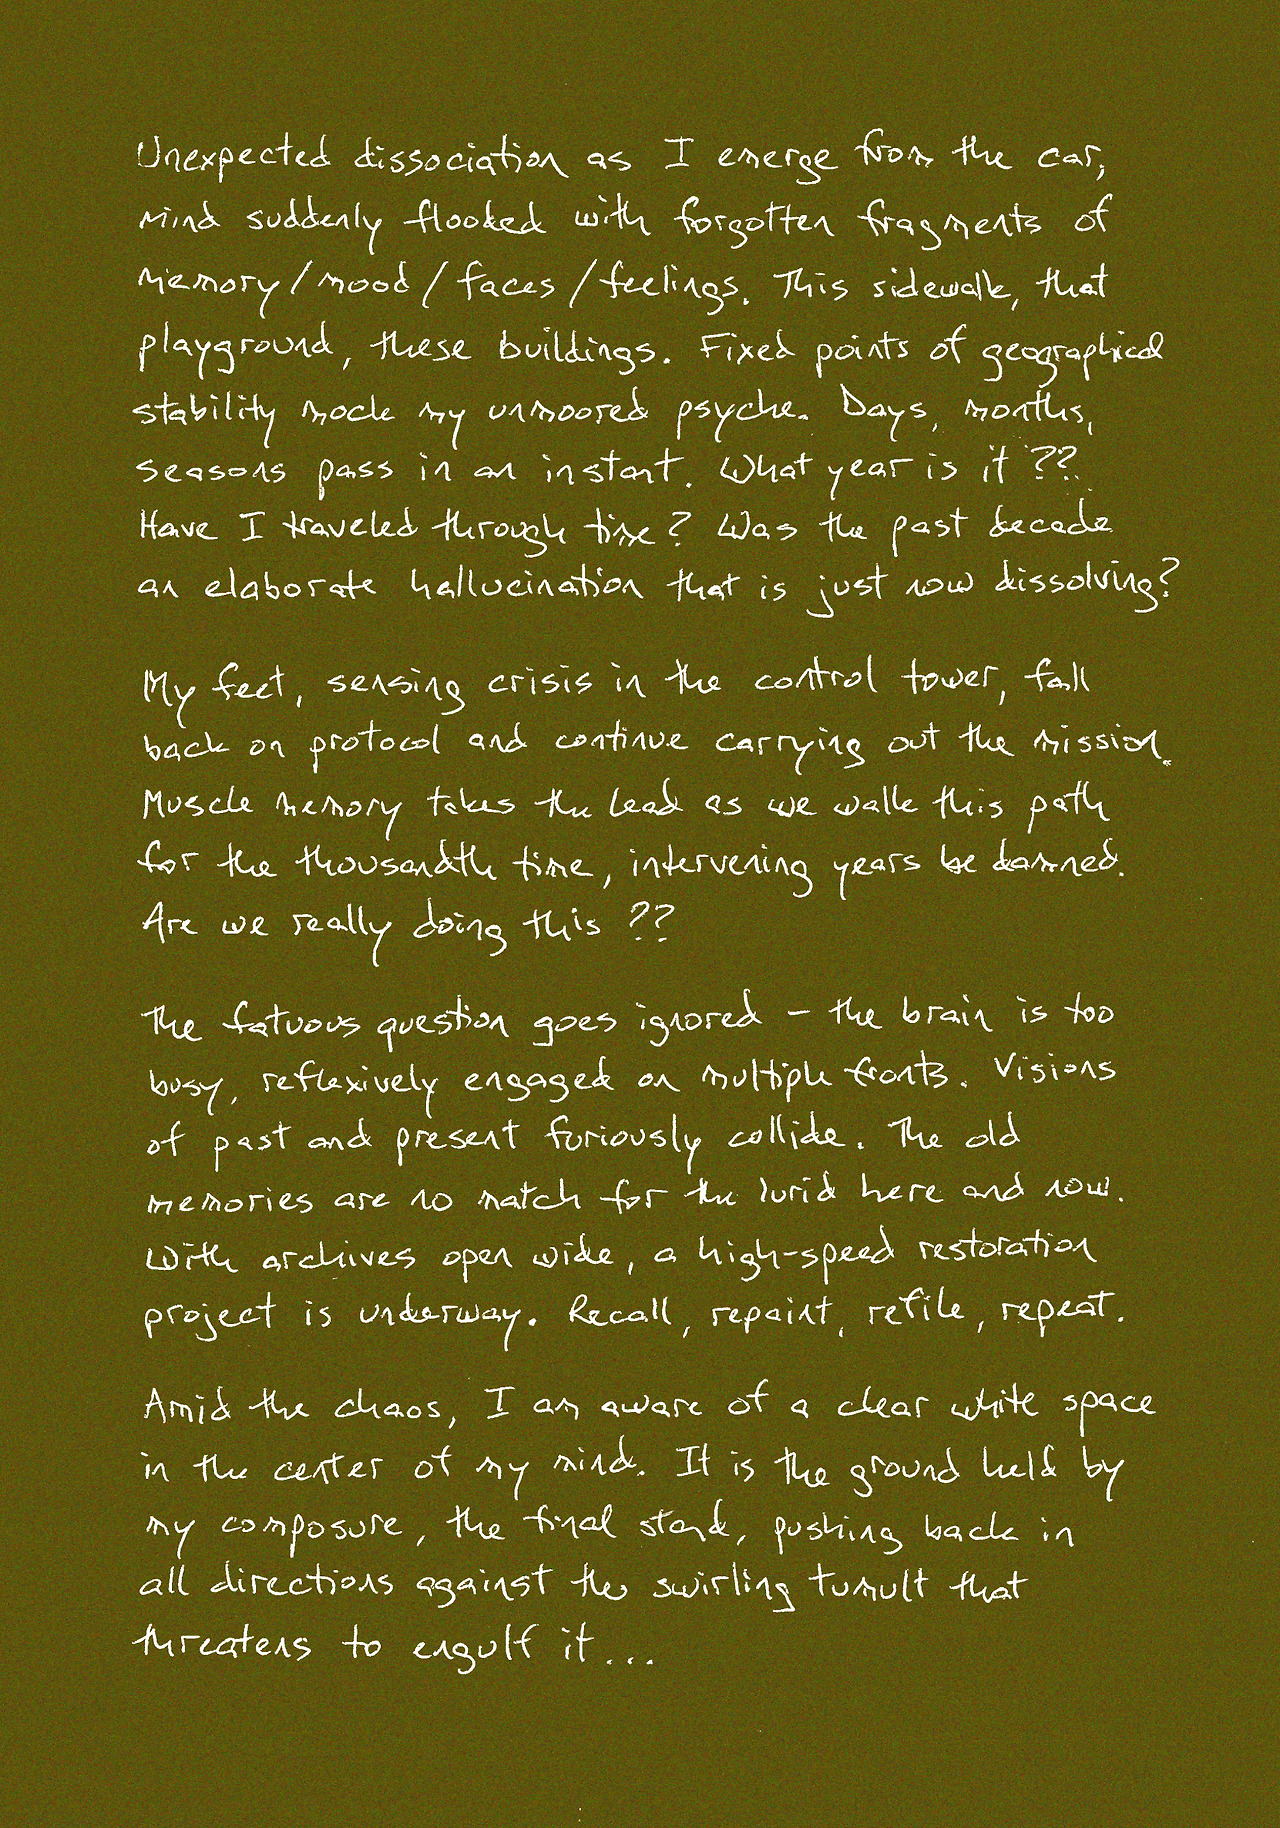 Unexpected dissociation as I emerge from the car,
mind suddenly flooded with forgotten fragments of
memory/mood/faces/feelings. This sidewalk, that
playground, these buildings. Fixed points of geographical
stability mock my unmoored psyche. Days, months,
seasons pass in an instant. What year is it??
Have I traveled through time? Was the past decade
an elaborate hallucination that is just now dissolving?
My feet, sensing crisis in the control tower, fall
back on protocol and continue carrying out the mission.
Muscle memory takes the lead as we walk this path
for the thousandth time, intervening years be damned.
Are we really doing this??
The fatuous question goes ignored – the brain is too
busy, reflexively engaged on multiple fronts. Visions
of past and present furiously collide. The old
memories are no match for the lurid here and now.
With archives open wide, a high-speed restoration
project is underway. Recall, repaint, refile, repeat.
Amid the chaos, I am aware of a clear white space
in the center of my mind. It is the ground held by
my composure, the final stand, pushing back in
all directions against the swirling tumult that
threatens to engulf it...